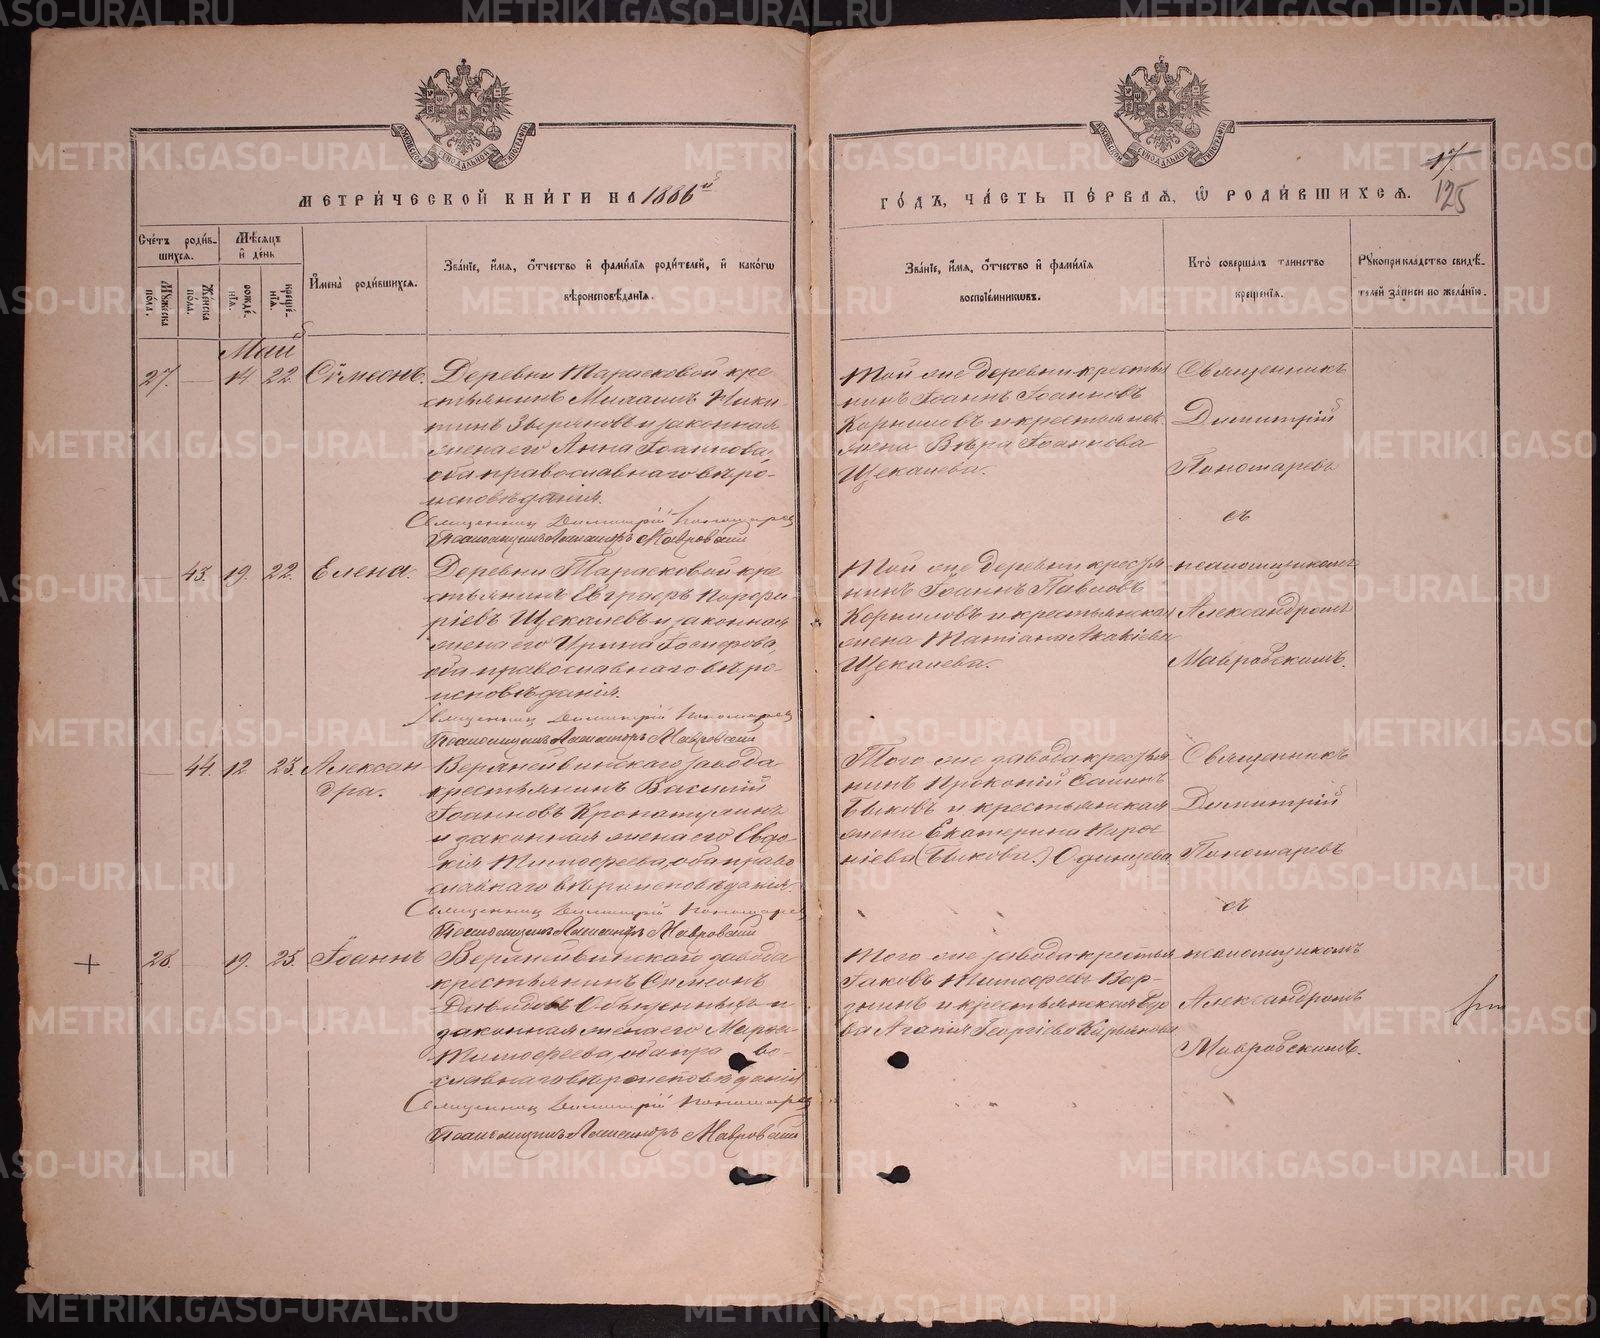 МЕТРИ́ЧЕСКОЙ КНИ́ГИ НА 1886й
ГО́ДЪ, ЧА́СТЬ ПЕ́РВАЯ, Ѡ РОДИ́ВШИХСЯ.
17.
125
Сче́тъ роди́вшихся.
Мѣ́сяцъ и́ де́нь
Му́жеска по́ла.
Же́нска по́ла.
рожде́нїя.
креще́нїя.
И҆мена̀ роди́вшихся.
Зва́нїе, и҆́мя, ѻ҆́тчество и҆ фами́лїя роди́телей, и҆ како́гѡ
вѣроисповѣ́данїя.
Зва́нїе, и҆́мя, ѻ҆́тчество и҆ фами́лїя
воспрїе́мниковъ.
Кто̀ соверша́лъ та́инство
креще́нїя.
Рукоприкла́дство свидѣ́-
телей за́писи по жела́нїю.
Май
27. — 14 22 Сѷмеонъ.
Деревни Тарасковой кре-
стьянинъ Михаилъ Ники-
тинъ Зверяновъ и законная
жена его Анна Іоаннова,
оба православнаго вѣро-
исповѣданія.
Священникъ Димитрій Пономаревъ
Псаломщикъ Александръ Мавровский
Той же деревни кресть-
нинъ Іоаннъ Іоанновъ
Корниловъ и крестьянск.
жена Вѣра Іоаннова
Щекалева.
Священникъ
Димитрій
Пономаревъ
съ
— 43. 19. 22. Елена.
Деревни Тарасковой кре-
стьянинъ Евграфъ Порфи-
ріевъ Щекалевъ и законная
жена его Ирина Іосифова,
оба православнаго вѣро-
исповѣданія.
Священникъ Димитрій Пономаревъ
Псаломщикъ Александръ Мавровский
Той же деревни крестья-
нинъ Іоаннъ Павловъ
Корниловъ и крестьянская
жена Татіана Акакіева
Щекалева.
псаломщикомъ
Александромъ
Мавровскимъ.
— 44. 12 23. Алексан-
дра.
Верхнейвинскаго завода
крестьянинъ Василій
Іоанновъ
и законная жена его Евдо-
кія Тимофеева, оба право-
славнаго вѣроисповѣданія.
Священникъ Димитрій Пономаревъ
Псаломщикъ Александръ Мавровский
Того же завода крестья-
нинъ Прокопій Савинъ
Быковъ и крестьянская
жена Екатерина
(Быкова.) Одинцева.
Священникъ
Димитрій
Пономаревъ
съ
+ 28. — 19. 25. Іоаннъ
Верхнейвинскаго завода
крестьянинъ Симеонъ
Давидовъ и
законная жена его Марѳа
Тимофеева, оба право-
славнаго вѣроисповѣданія
Священникъ Димитрій Пономаревъ
Псаломщикъ Александръ Мавровский
Того же завода крестья
Іаковъ Тимофеевъ
и крестьянская вдо-
ва Агапія Георгіева
псаломщикомъ
Александромъ
Мавровскимъ.
METRIKI.GASO-URAL.RU